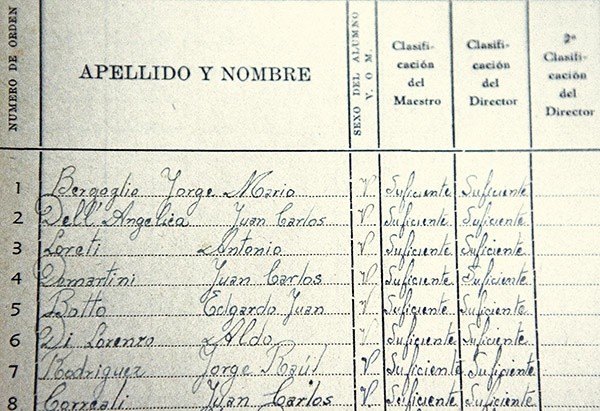 NUMERO DE ORDEN
APELLIDO Y NOMBRE
SEXO DEL ALUMNO V. O M.
Clasifi-
cación
del
Maestro
Clasifi-
cación
del
Director
2ª
Clasifi-
cación
del
Director
1 Bergaglia Jorge Mario V Suficiente Suficiente
2 Dell' Angelica Juan Carlos V Suficiente Suficiente
3 Loreti Antonio V Suficiente Suficiente
4 Demartini Juan Carlos V Suficiente Suficiente
5 Botto Edgardo Juan V Suficiente Suficiente
6 Di Lorenzo Aldo V Suficiente Suficiente
7 Rodriguez Jorge Raúl V Suficiente Suficiente
8 Juan Carlos V Suficiente Suficiente